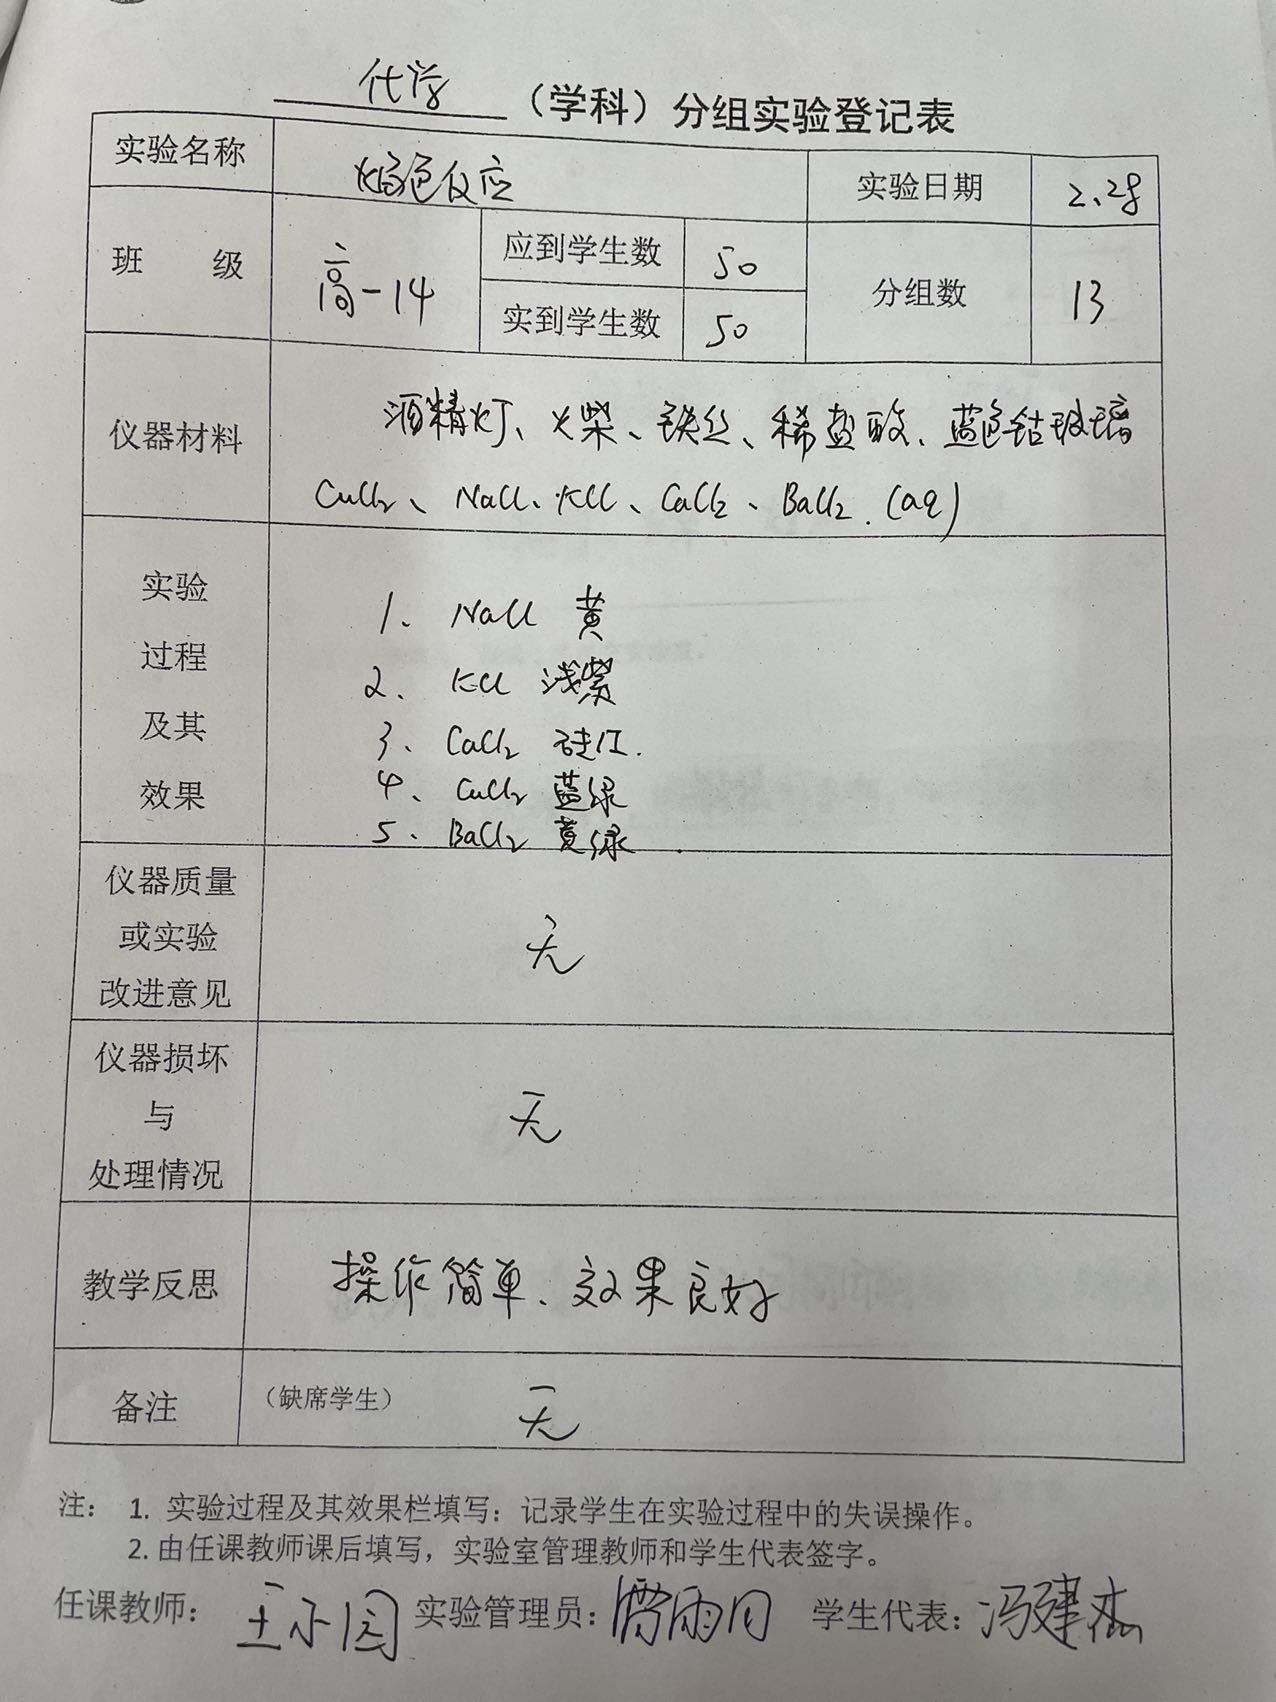 化学 （学科）分组实验登记表
实验名称 焰色反应 实验日期 2、28
班 级 高一14 应到学生数 50 分组数 13
实到学生数 50
仪器材料 酒精灯、火柴、铁丝、稀盐酸、蓝色钴玻璃
CuCl2、NaCl、KCl、CaCl2、BaCl2.(aq)
实验
过程
及其
效果
1、NaCl 黄
2、KCl 浅紫
3、CaCl2 砖红.
4、CuCl2 蓝绿
5、BaCl2 黄绿.
仪器质量
或实验
改进意见
无
仪器损坏
与
处理情况
无
教学反思 操作简单、效果良好
备注 （缺席学生） 无
注： 1. 实验过程及其效果栏填写：记录学生在实验过程中的失误操作。
2. 由任课教师课后填写，实验室管理教师和学生代表签字。
任课教师：王小园 实验管理员： 雨 学生代表：冯建杰